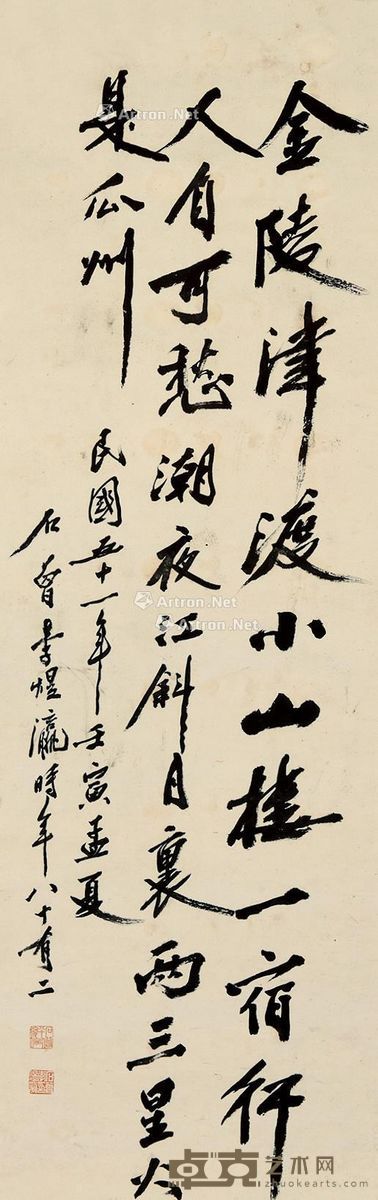 金陵津渡小山樓一宿行
人自可愁潮夜江斜月裏兩三星火
是瓜州
民國五十一年壬寅孟夏
石曾李煜瀛時年八十有二
Artron.Net
Artron.Net
Artron.Net
Artron.Net
卓克艺术网
zhuokearts.com